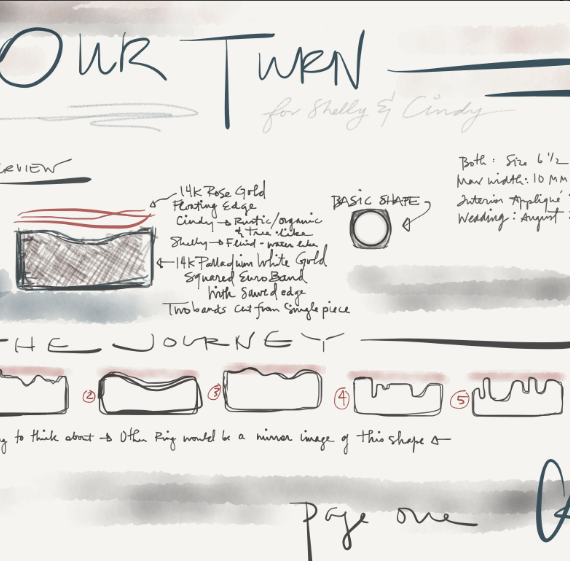 OUR TURN
for Shelly & Cindy
ERVIEW
14K Rose Gold
Floating Edge
Cindy → Rustic/organic
& tree-like
Shelly → Fluid - water like
14K Palladium White Gold
Squared Euro Band
With Sawed edge
Two bands cut from single piece
BASIC SHAPE
Both : Size 6 1/2
Max width: 10 MM
Interior Appliqué
Wedding : August
HE JOURNEY
②
③
④
⑤
g to think about → Other Ring would be a mirror image of this shape
page one